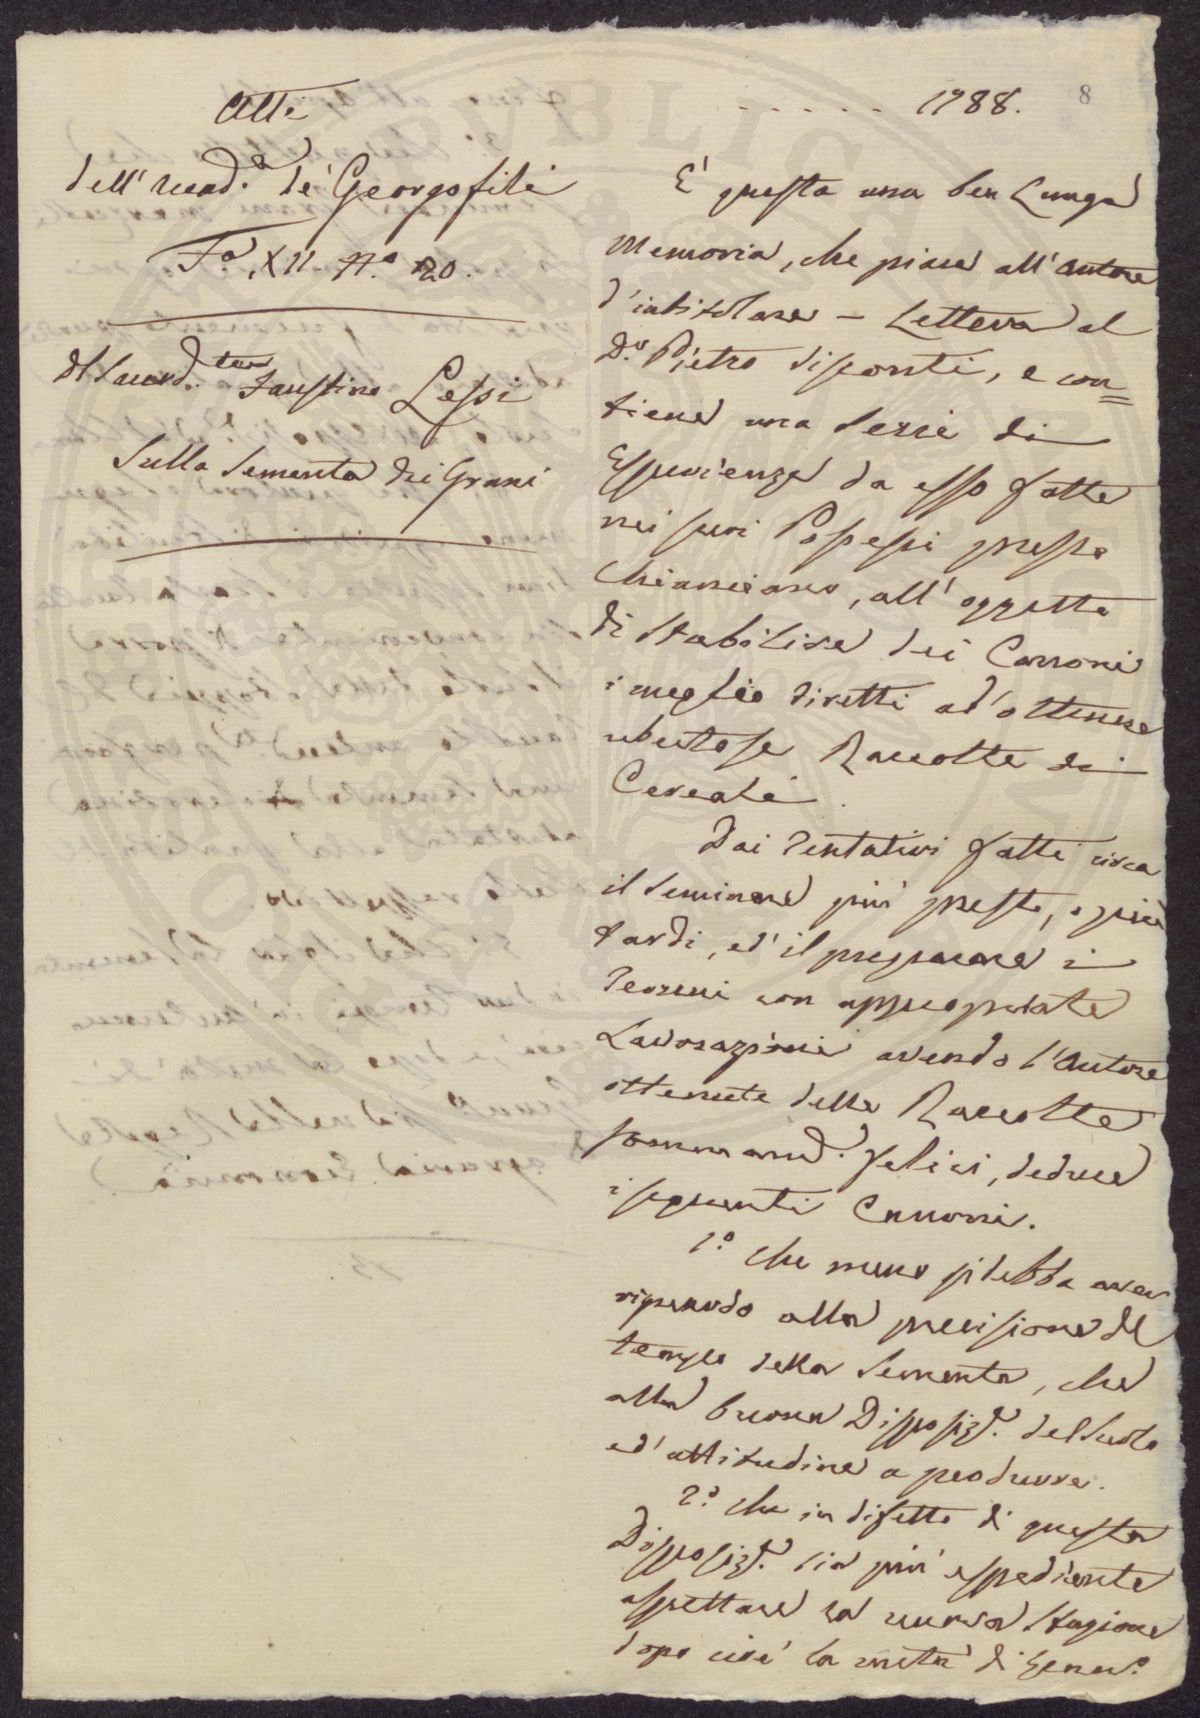 Atti
dell'Accad.a de' Georgofili
F.a XII. N.o 20.
Del Sacerd.te Faustino Lessi
Sulla Sementa dei Grani
1788.
8
E' questa una ben Lunga
Memoria, che piace all'Autore
d'intitolare – Lettera al
D.r Pietro Sisponti, e con=
tiene una Serie di
Esperienze da esso fatte
nei suoi Possessi presso
Chianciano, all'oggetto
di stabilire dei Canoni
i meglio diretti ad' ottenere
ubertose Raccolte di
Cereali.
Dai Tentativi fatti circa
il seminare più presto, o più
tardi, ed' il preparare i
Terreni con appropriate
Lavorazioni avendo l'Autore
ottenute delle Raccolte
sommam.e felici, deduce
i seguenti Canoni.
1.o Che meno si debba aver
riguardo alla precisione del
tempo della Sementa, che
alla buona Disposiz.e del Suolo
ed' attitudine a produrre.
2.o Che in difetto di questa
Disposiz.e sia più espediente
aspettare la nuova Stagione
dopo cioè la metà di Genn.o